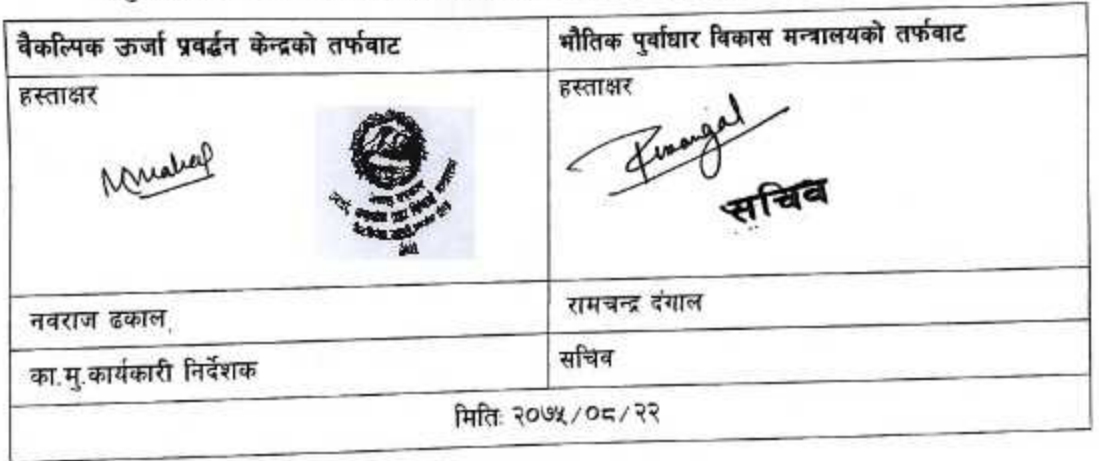 वैकल्पिक ऊर्जा प्रवर्द्धन केन्द्रको तर्फबाट
भौतिक पुर्वाधार विकास मन्त्रालयको तर्फबाट
हस्ताक्षर
हस्ताक्षर
सचिव
नवराज ढकाल
रामचन्द्र दंगाल
का.मु.कार्यकारी निर्देशक
सचिव
मितिः २०७५/०८/२२